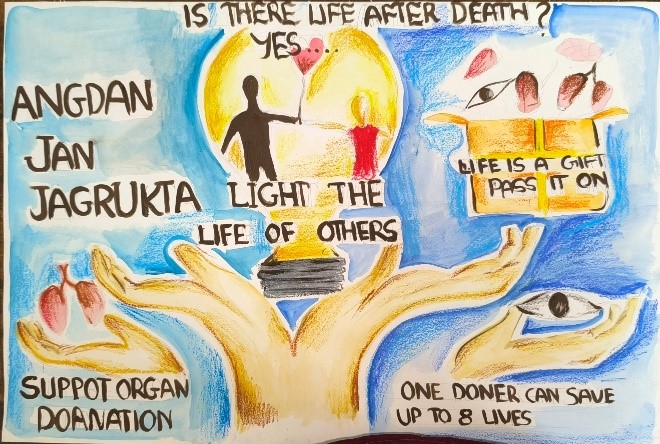 IS THERE LIFE AFTER DEATH?
YES....
ANGDAN
JAN
JAGRUKTA
LIGHT THE
LIFE OF OTHERS
LIFE IS A GIFT
PASS IT ON
SUPPOT ORGAN
DOANATION
ONE DONER CAN SAVE
UP TO 8 LIVES